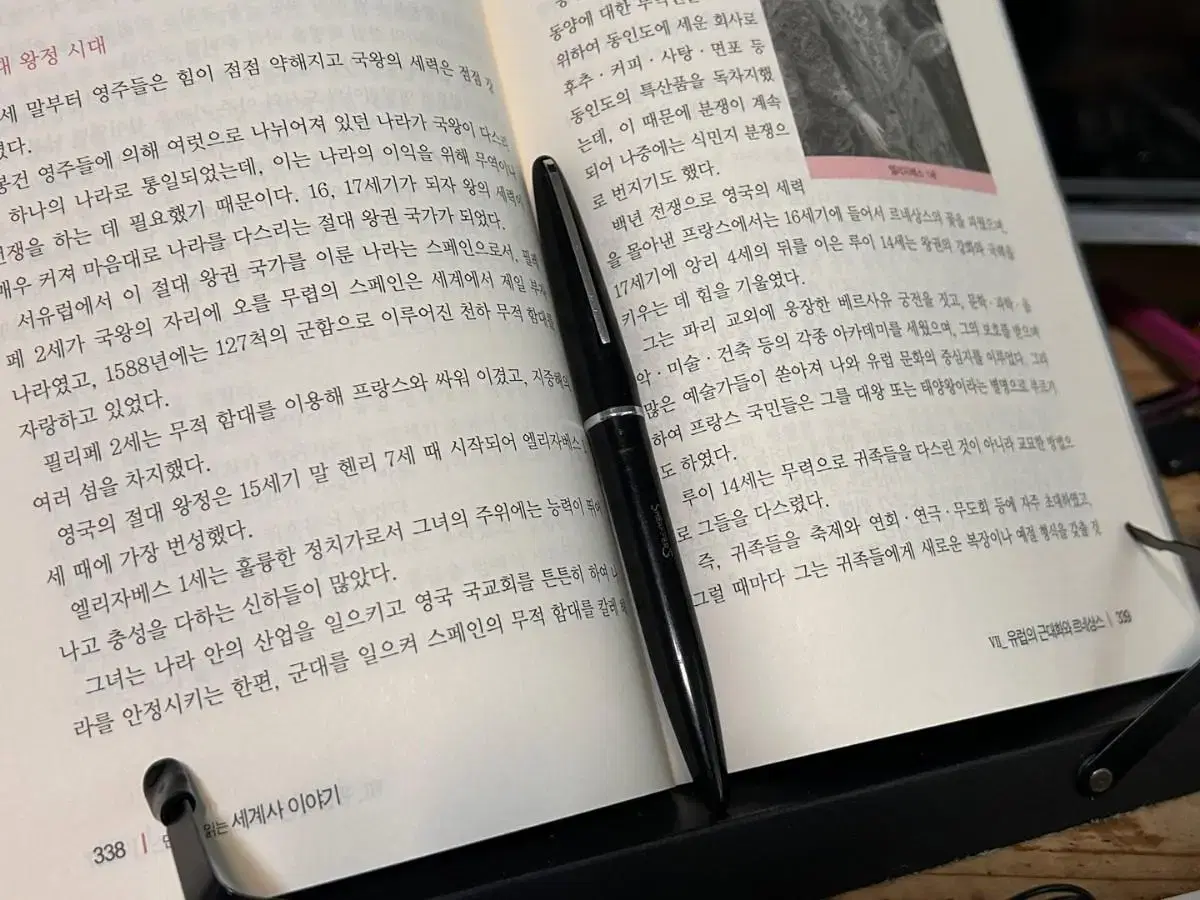 대 왕정 시대
세 말부터 영주들은 힘이 점점 약해지고 국왕의 세력은 점점
였다.
봉건 영주들에 의해 여럿으로 나뉘어져 있던 나라가 국왕이 다스리
하나의 나라로 통일되었는데, 이는 나라의 이익을 위해 무역이나
전쟁을 하는 데 필요했기 때문이다. 16, 17세기가 되자 왕의 세력이
매우 커져 마음대로 나라를 다스리는 절대 왕권 국가가 되었다.
서유럽에서 이 절대 왕권 국가를 이룬 나라는 스페인으로서, 필리
페 2세가 국왕의 자리에 오를 무렵의 스페인은 세계에서 제일 부자
나라였고, 1588년에는 127척의 군함으로 이루어진 천하 무적 함대를
자랑하고 있었다.
필리페 2세는 무적 함대를 이용해 프랑스와 싸워 이겼고, 지중해의
여러 섬을 차지했다.
영국의 절대 왕정은 15세기 말 헨리 7세 때 시작되어 엘리자베스 1
세 때에 가장 번성했다.
엘리자베스 1세는 훌륭한 정치가로서 그녀의 주위에는 능력이 뛰어
나고 충성을 다하는 신하들이 많았다.
그녀는 나라 안의 산업을 일으키고 영국 국교회를 튼튼히 하여 나
라를 안정시키는 한편, 군대를 일으켜 스페인의 무적 함대를 칼레
338
읽는 세계사 이야기
동양에 대한
위하여 동인도에 세운 회사로
후추·커피·사탕·면포 등
동인도의 특산품을 독차지했
는데, 이 때문에 분쟁이 계속
되어 나중에는 식민지 분쟁으
로 번지기도 했다.
엘리자베스 1세
백년 전쟁으로 영국의 세력
을 몰아낸 프랑스에서는 16세기에 들어서 르네상스의 꽃을 피웠으며,
17세기에 앙리 4세의 뒤를 이은 루이 14세는 왕권의 강화와 국력을
키우는 데 힘을 기울였다.
그는 파리 교외에 웅장한 베르사유 궁전을 짓고, 문학·과학·음
악·미술·건축 등의 각종 아카데미를 세웠으며, 그의 보호를 받으며
많은 예술가들이 쏟아져 나와 유럽 문화의 중심지를 이루었다. 그리
하여 프랑스 국민들은 그를 대왕 또는 태양왕이라는 별명으로 부르기
도 하였다.
루이 14세는 무력으로 귀족들을 다스린 것이 아니라 교묘한 방법으
로 그들을 다스렸다.
즉, 귀족들을 축제와 연회·연극·무도회 등에 자주 초대하였고,
그럴 때마다 그는 귀족들에게 새로운 복장이나 예절 형식을 갖출 것
VII_ 유럽의 근대화와 르네상스 | 339
SHEAFFER'S